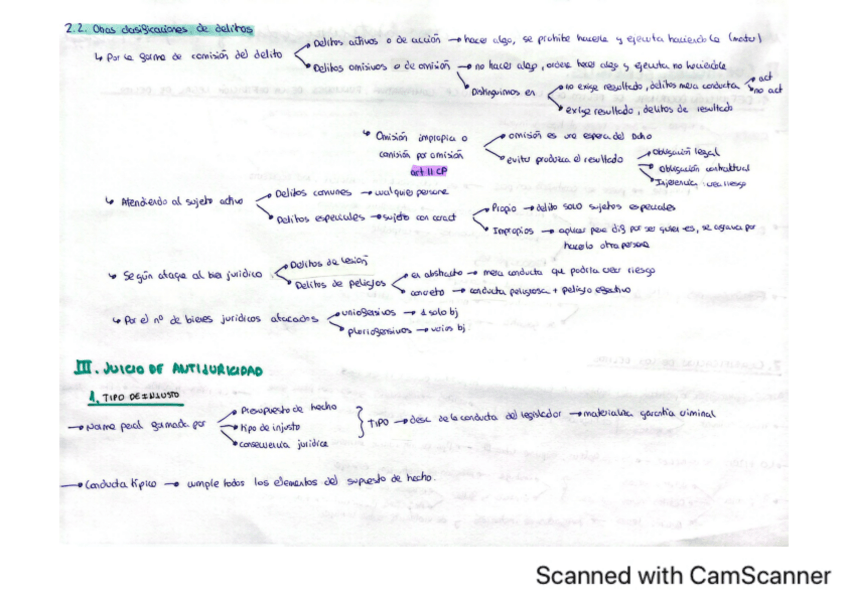 2.2. Otras clasificaciones de delitos
↳ Por la forma de comisión del delito
Delitos activos o de acción → hacer algo, se prohibe hacerlo y ejecuta haciendolo (matar)
Delitos omisivos o de omisión → no hacer algo, orden hacer algo y ejecuta no haciendole
Distinguimos en
no exige resultado, delitos mera conducta
act
no act
exige resultado, delitos de resultado
↳ Omisión impropia o
comisión por omisión
art 11 CP
omisión es una espera del
evitar produzca el resultado
Obligación legal
Obligación contractual
Injerencia: crea riesgo
↳ Atendiendo al sujeto activo
Delitos comunes → cualquier persona
Delitos especiales → sujeto con caract
Propio → delito solo sujetos especiales
Impropios → aplicar pena dif por ser quien es, se agrava por
hacerlo otra persona
↳ Según ataque al bien jurídico
Delitos de lesión
Delitos de peligros
en abstracto → mera conducta que podría crear riesgo
concreto → conducta peligrosa + peligro efectivo
↳ Por el nº de bienes jurídicos atacados
uniofensivos → 1 solo bj
pluriofensivos → varios bj
III. JUICIO DE ANTIJURICIDAD
1. TIPO DE INJUSTO
→ Norma penal formada por
Presupuesto de hecho
tipo de injusto
consecuencia jurídica
} TIPO → desc de la conducta del legislador → materializa garantía criminal
→ Conducta típica → cumple todos los elementos del supuesto de hecho.
Scanned with CamScanner